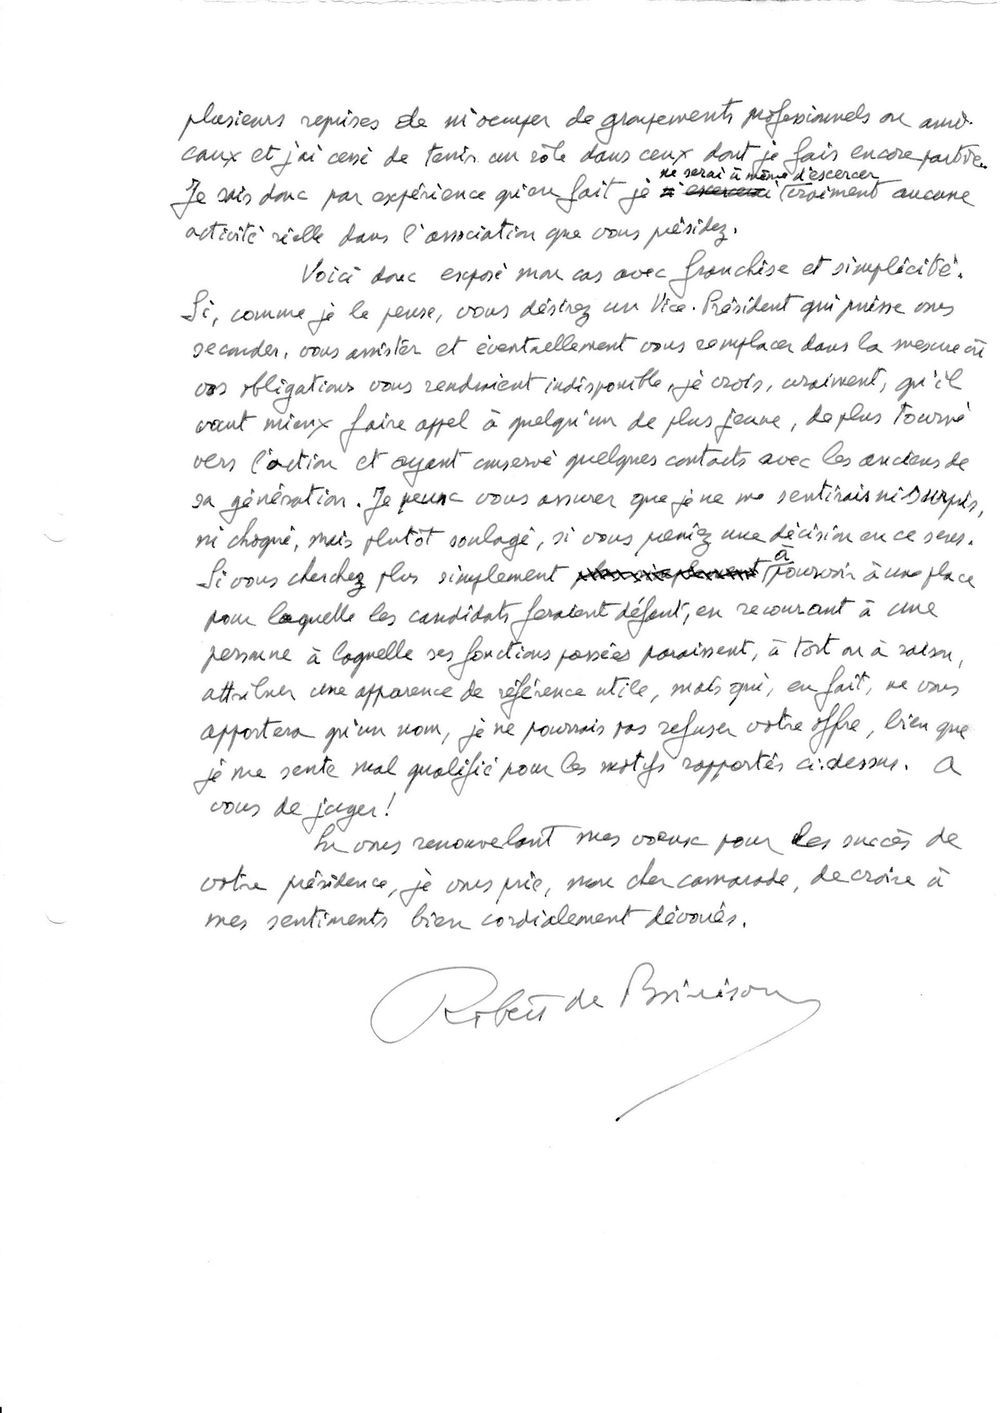 plusieurs reprises de m'occuper de groupements professionnels ou ami-
caux et j'ai cessé de tenir un rôle dans ceux dont je fais encore partie.
ne serai à même d'escercer
Je sais donc par expérience qu'en fait je n'escercerai vraiment aucune
activité réelle dans l'association que vous présidez.
Voici donc exposé mon cas avec franchise et simplicité.
Si, comme je le pense, vous désirez un Vice-Président qui puisse vous
seconder, vous assister et éventuellement vous remplacer dans la mesure où
vos obligations vous rendraient indisponible, je crois, vraiment, qu'il
vaut mieux faire appel à quelqu'un de plus jeune, de plus tourné
vers l'action et ayant conservé quelques contacts avec les anciens de
sa génération. Je peux vous assurer que je ne me sentirais ni surpris,
ni choqué, mais plutôt soulagé, si vous preniez une décision en ce sens.
à
Si vous cherchez plus simplement plus simplement pourvoir à une place
pour laquelle les candidats feraient défaut, en recourant à une
personne à laquelle ses fonctions passées paraissent, à tort ou à raison,
attribuer une apparence de référence utile, mais qui, en fait, ne vous
apportera qu'un nom, je ne pourrais pas refuser votre offre, bien que
je me sente mal qualifié pour les motifs rapportés ci-dessus. A
vous de juger!
En vous renouvelant mes vœux pour les succès de
votre présidence, je vous prie, mon cher camarade, de croire à
mes sentiments bien cordialement dévoués.
Robert de